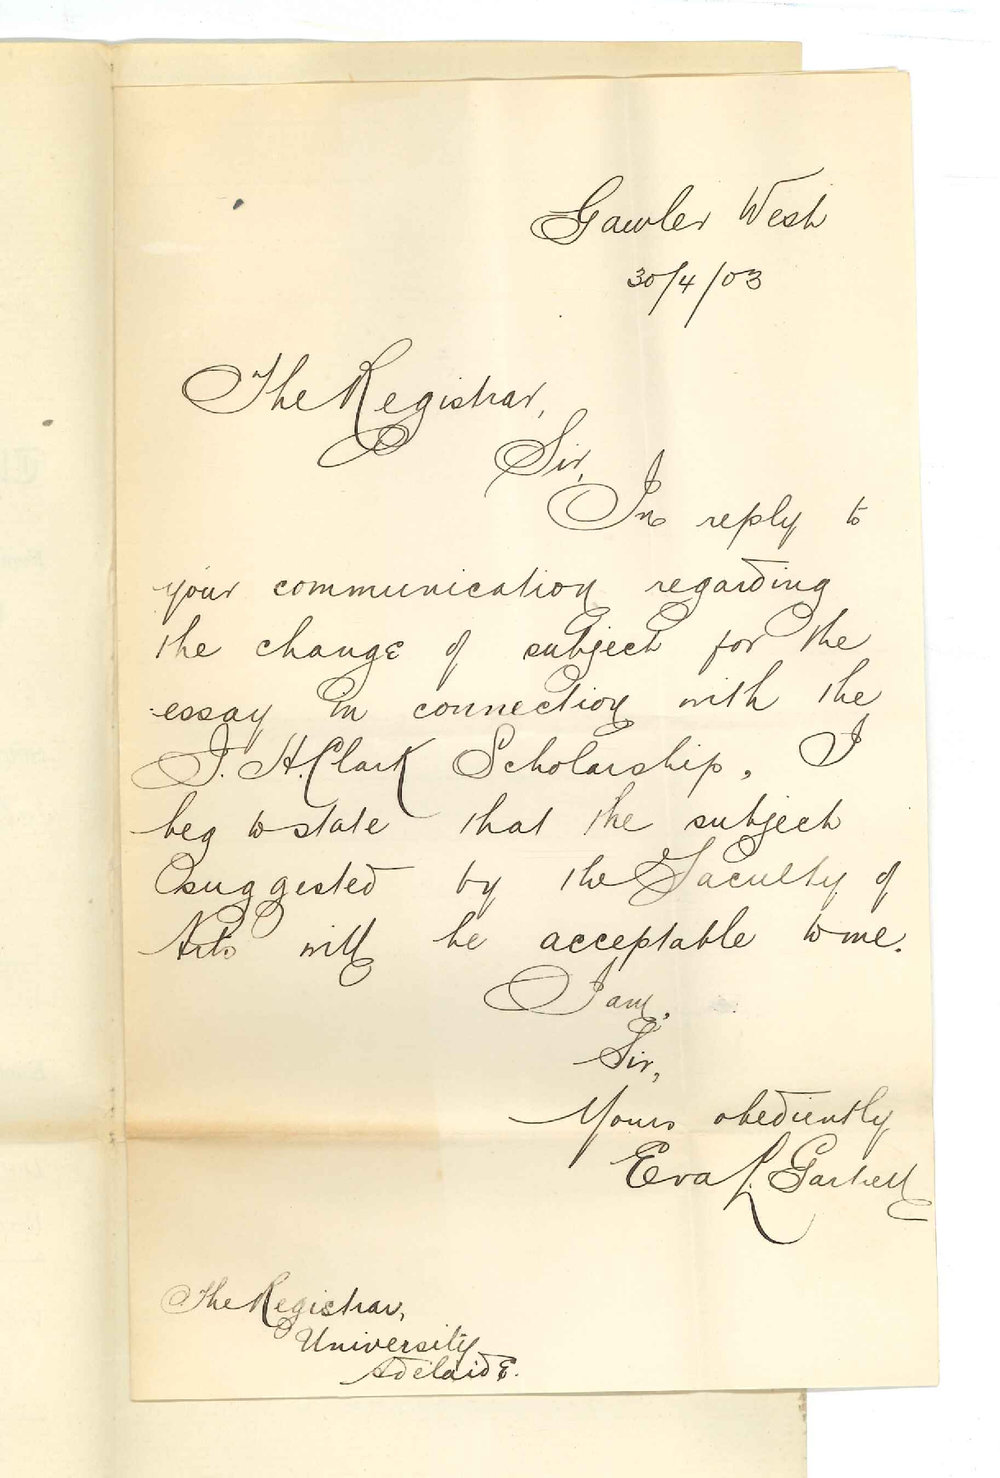 Gawler West
30/4/03
The Registrar,
Sir,
In reply to
your communication regarding
the change of subject for the
essay in connection with the
J. H. Clark Scholarship, I
beg to state that the subject
suggested by the Faculty of
Arts will be acceptable to me.
I am,
Sir,
Yours obediently
Eva L.
The Registrar,
University
Adelaide.